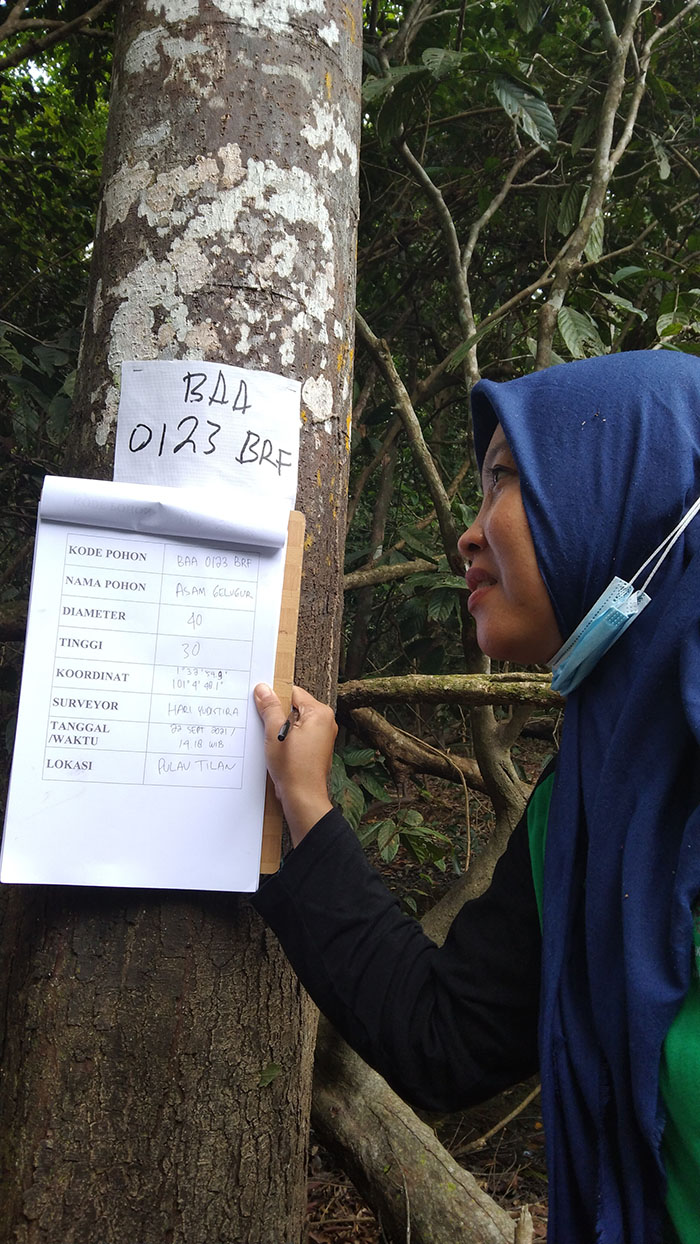 BAA
0123 BRF
KODE POHON BAA 0123 BRF
NAMA POHON ASAM GELUGUR
DIAMETER 40
TINGGI 30
KOORDINAT
101° 4' 48.1"
SURVEYOR HARI YUDISTIRA
TANGGAL 22 SEPT 2021 /
/WAKTU 14.18 WIB
LOKASI PULAU TILAN